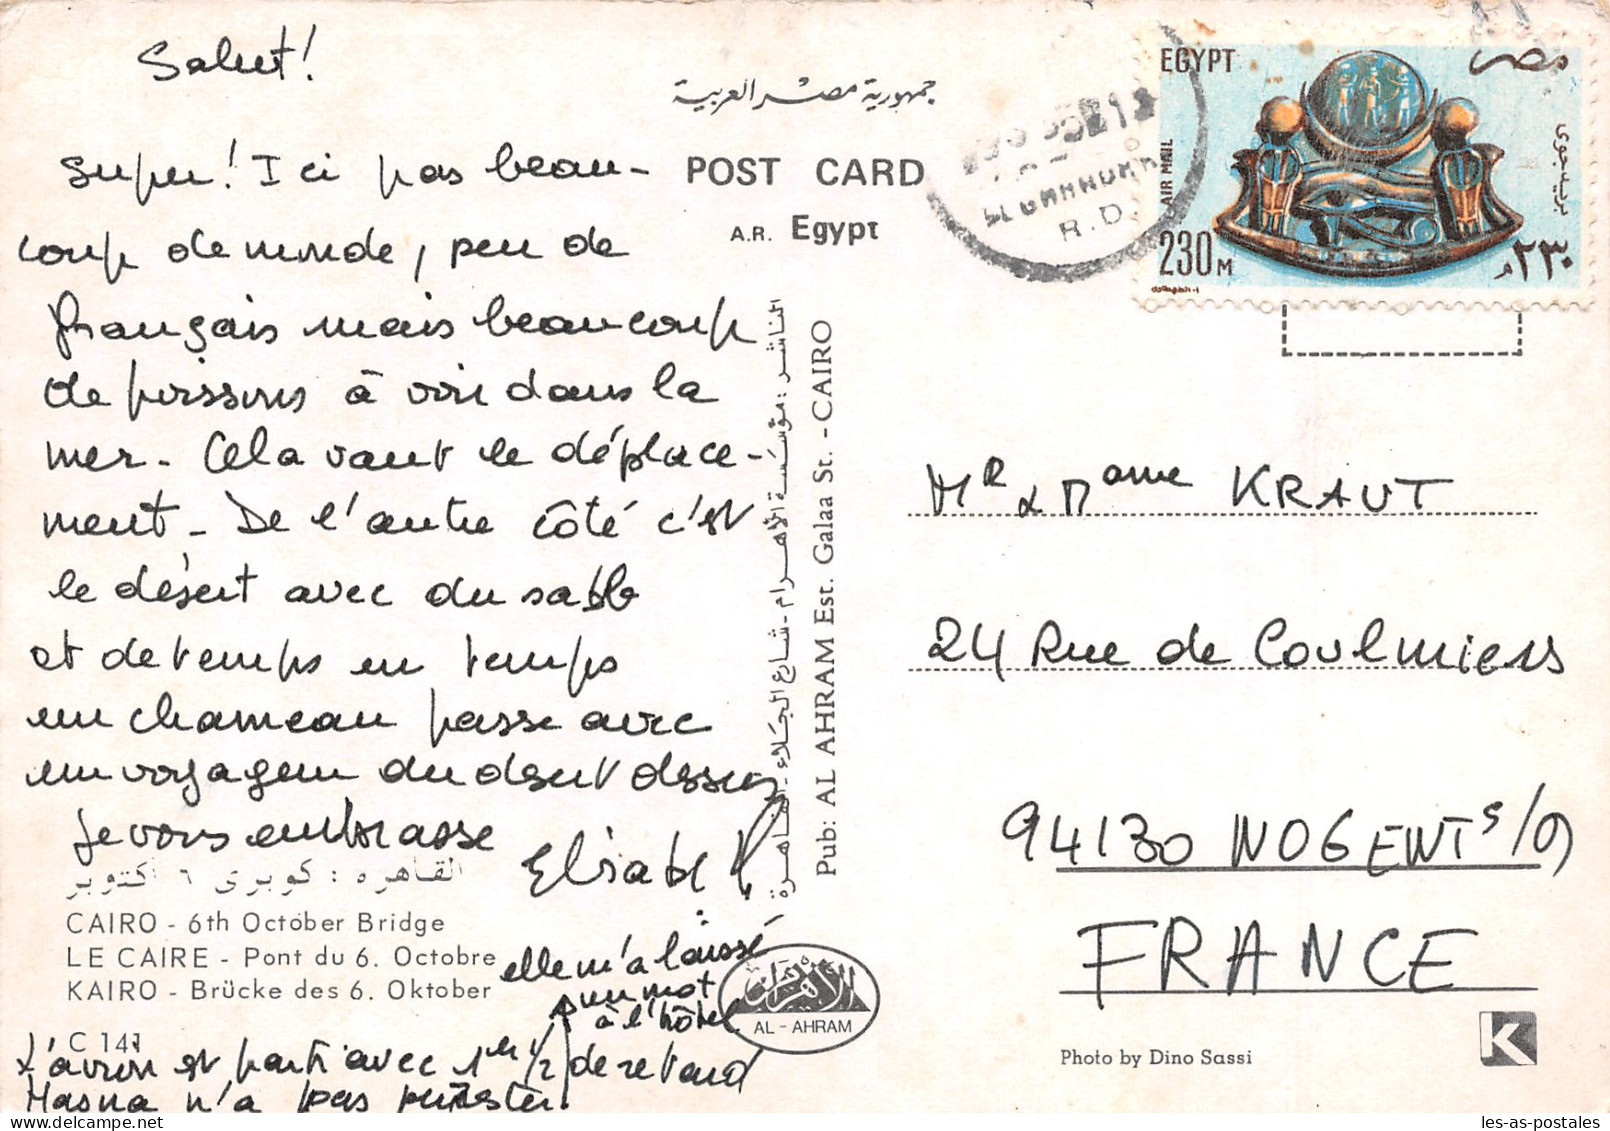 Salut!
Super! Ici pas beau-
coup de monde, peu de
français mais beaucoup
de poissons à voir dans la
mer. Cela vaut le déplace-
ment. De l'autre côté c'est
le désert avec du sable
et de temps en temps
un chameau passe avec
un voyageur du désert dessus
Je vous embrasse
Elisabeth
القاهرة : كوبرى ٦ اكتوبر
CAIRO - 6th October Bridge
LE CAIRE - Pont du 6. Octobre
KAIRO - Brücke des 6. Oktober
C 141
elle m'a laissé
un mot
à l'hôtel
L'avion est parti avec 1er 1/2 de retard
n'a pas
جمهورية مصر العربية
POST CARD
A.R. Egypt
الناشر : مؤسسة الأهرام - شارع الجلاء - القاهرة
Pub: AL AHRAM Est. Galaa St. - CAIRO
الأهرام
AL - AHRAM
R.D.
EGYPT
مصر
AIR MAIL
بريد جوى
230 M
٢٣٠ م
Mr & Mame KRAUT
24 Rue de Coulmiers
94130 NOGENT s/M
FRANCE
Photo by Dino Sassi
K
les-as-postales